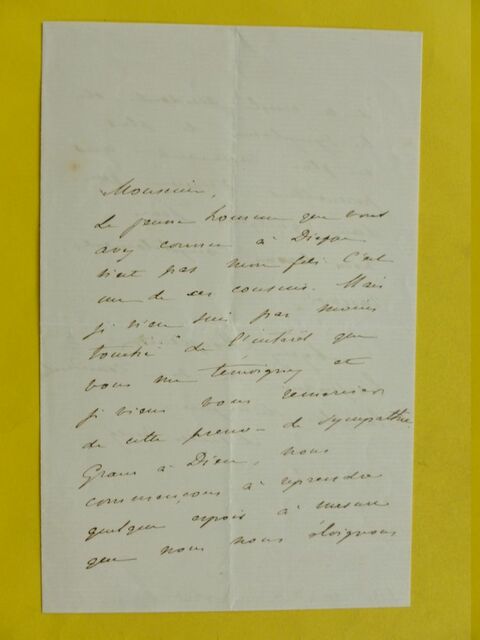 Monsieur,
Le jeune homme que vous
avez connu à Dieppe
n'est pas mon fils. C'est
un de ses cousins. Mais
je n'en suis pas moins
touché de l'intérêt que
vous me témoignez et
je viens vous remercier
de cette preuve de sympathie.
Grace à Dieu, nous
commençons à reprendre
quelque espoir à mesure
que nous nous éloignons